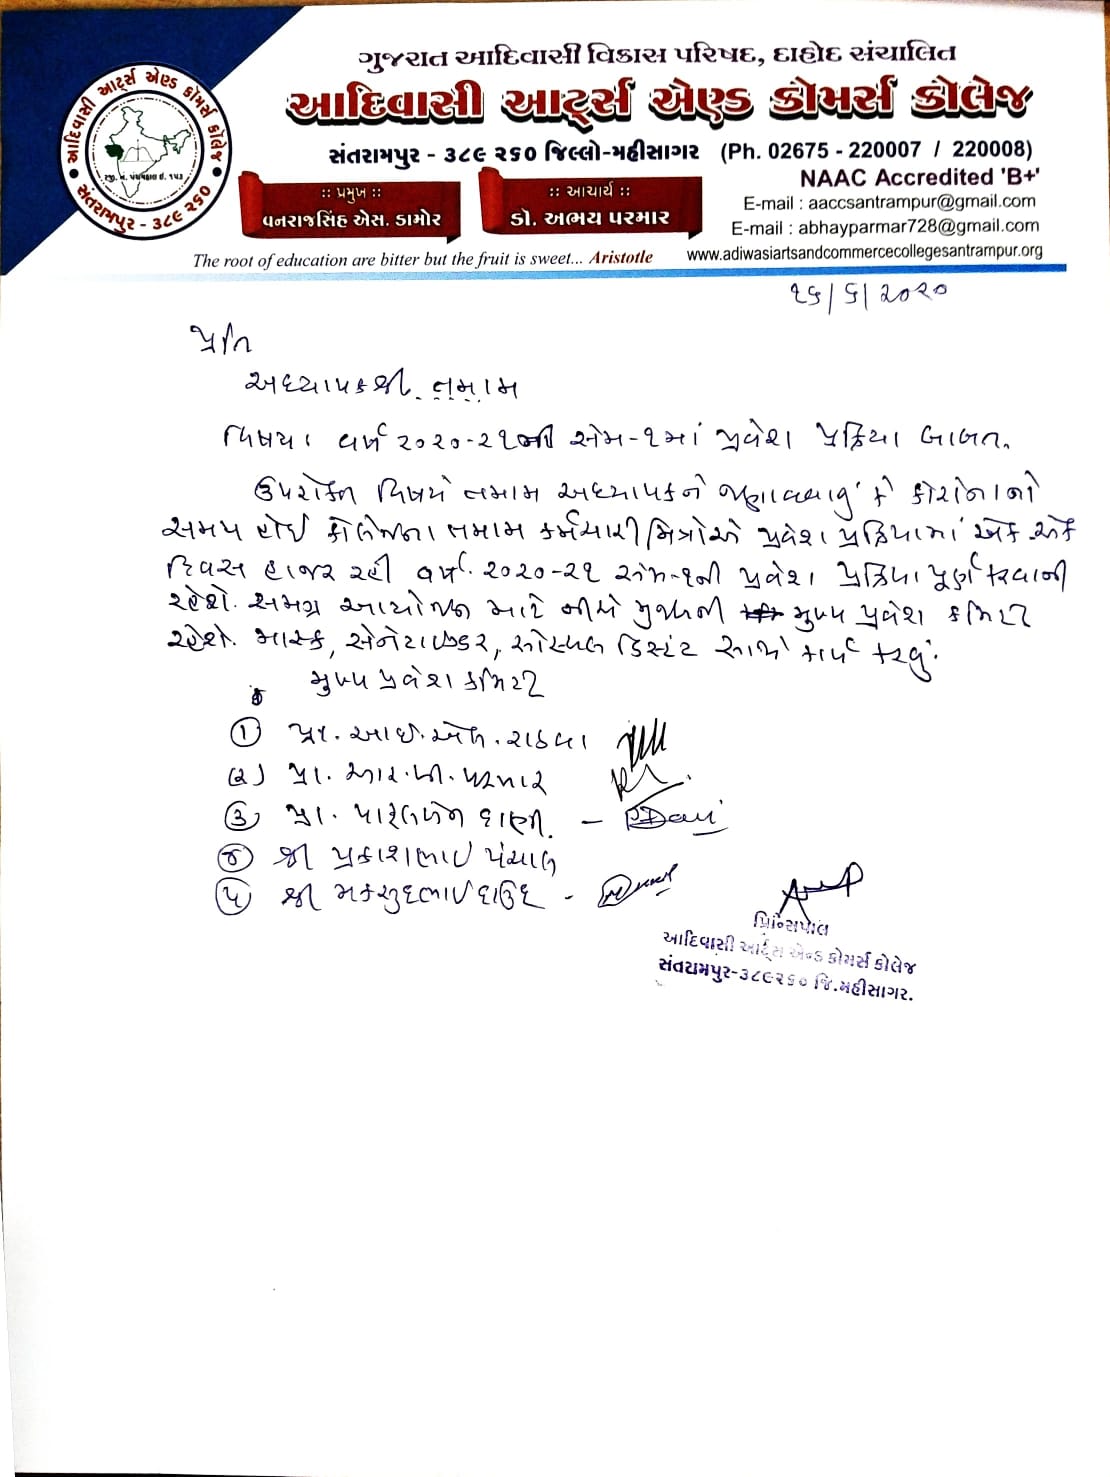 ગુજરાત આદિવાસી વિકાસ પરિષદ, દાહોદ સંચાલિત
આદિવાસી આર્ટ્સ એણ્ડ કોમર્સ કોલેજ
સંતરામપુર - ૩૮૯ ૨૬૦ જિલ્લો-મહીસાગર (Ph. 02675 - 220007 / 220008)
NAAC Accredited 'B+'
:: પ્રમુખ ::
વનરાજસિંહ એસ. ડામોર
:: આચાર્ય ::
ડૉ. અભય પરમાર
E-mail : aaccsantrampur@gmail.com
E-mail : abhayparmar728@gmail.com
The root of education are bitter but the fruit is sweet... Aristotle
www.adiwasiartsandcommercecollegesantrampur.org
આદિવાસી આર્ટ્સ એણ્ડ કોમર્સ કોલેજ
સંતરામપુર - ૩૮૯ ૨૬૦
૨૬/૬/૨૦૨૦
પ્રતિ
અધ્યાપકશ્રી તમામ
વિષય: વર્ષ ૨૦૨૦-૨૧ની સેમ-૧માં પ્રવેશ પ્રક્રિયા બાબત.
ઉપરોક્ત વિષયે તમામ અધ્યાપકને જણાવવાનું કે કોરોનાનો
સમય હોઈ કોલેજના તમામ કર્મચારી મિત્રોએ પ્રવેશ પ્રક્રિયામાં એક એક
દિવસ હાજર રહી વર્ષ ૨૦૨૦-૨૧ સેમ-૧ની પ્રવેશ પ્રક્રિયા પૂર્ણ કરવાની
રહેશે. સમગ્ર આયોજન માટે નીચે મુજબની મુખ્ય પ્રવેશ કમિટી
રહેશે. માસ્ક, સેનેટાઈઝર, સોસ્યલ ડિસ્ટંટ સાથે કાર્ય કરવું.
મુખ્ય પ્રવેશ કમિટી
૧ પ્રા. આઈ. એલ. રાઠવા
(૨) પ્રા. આર. બી. પરમાર
૩ પ્રા. પારૂલબેન દાણી. - PDani
૪ શ્રી પ્રકાશભાઈ પંચાલ
૫ શ્રી મકસુદભાઈ દાઉદ -
પ્રિન્સિપાલ
આદિવાસી આર્ટ્સ એન્ડ કોમર્સ કોલેજ
સંતરામપુર-૩૮૯૨૬૦ જિ.મહીસાગર.